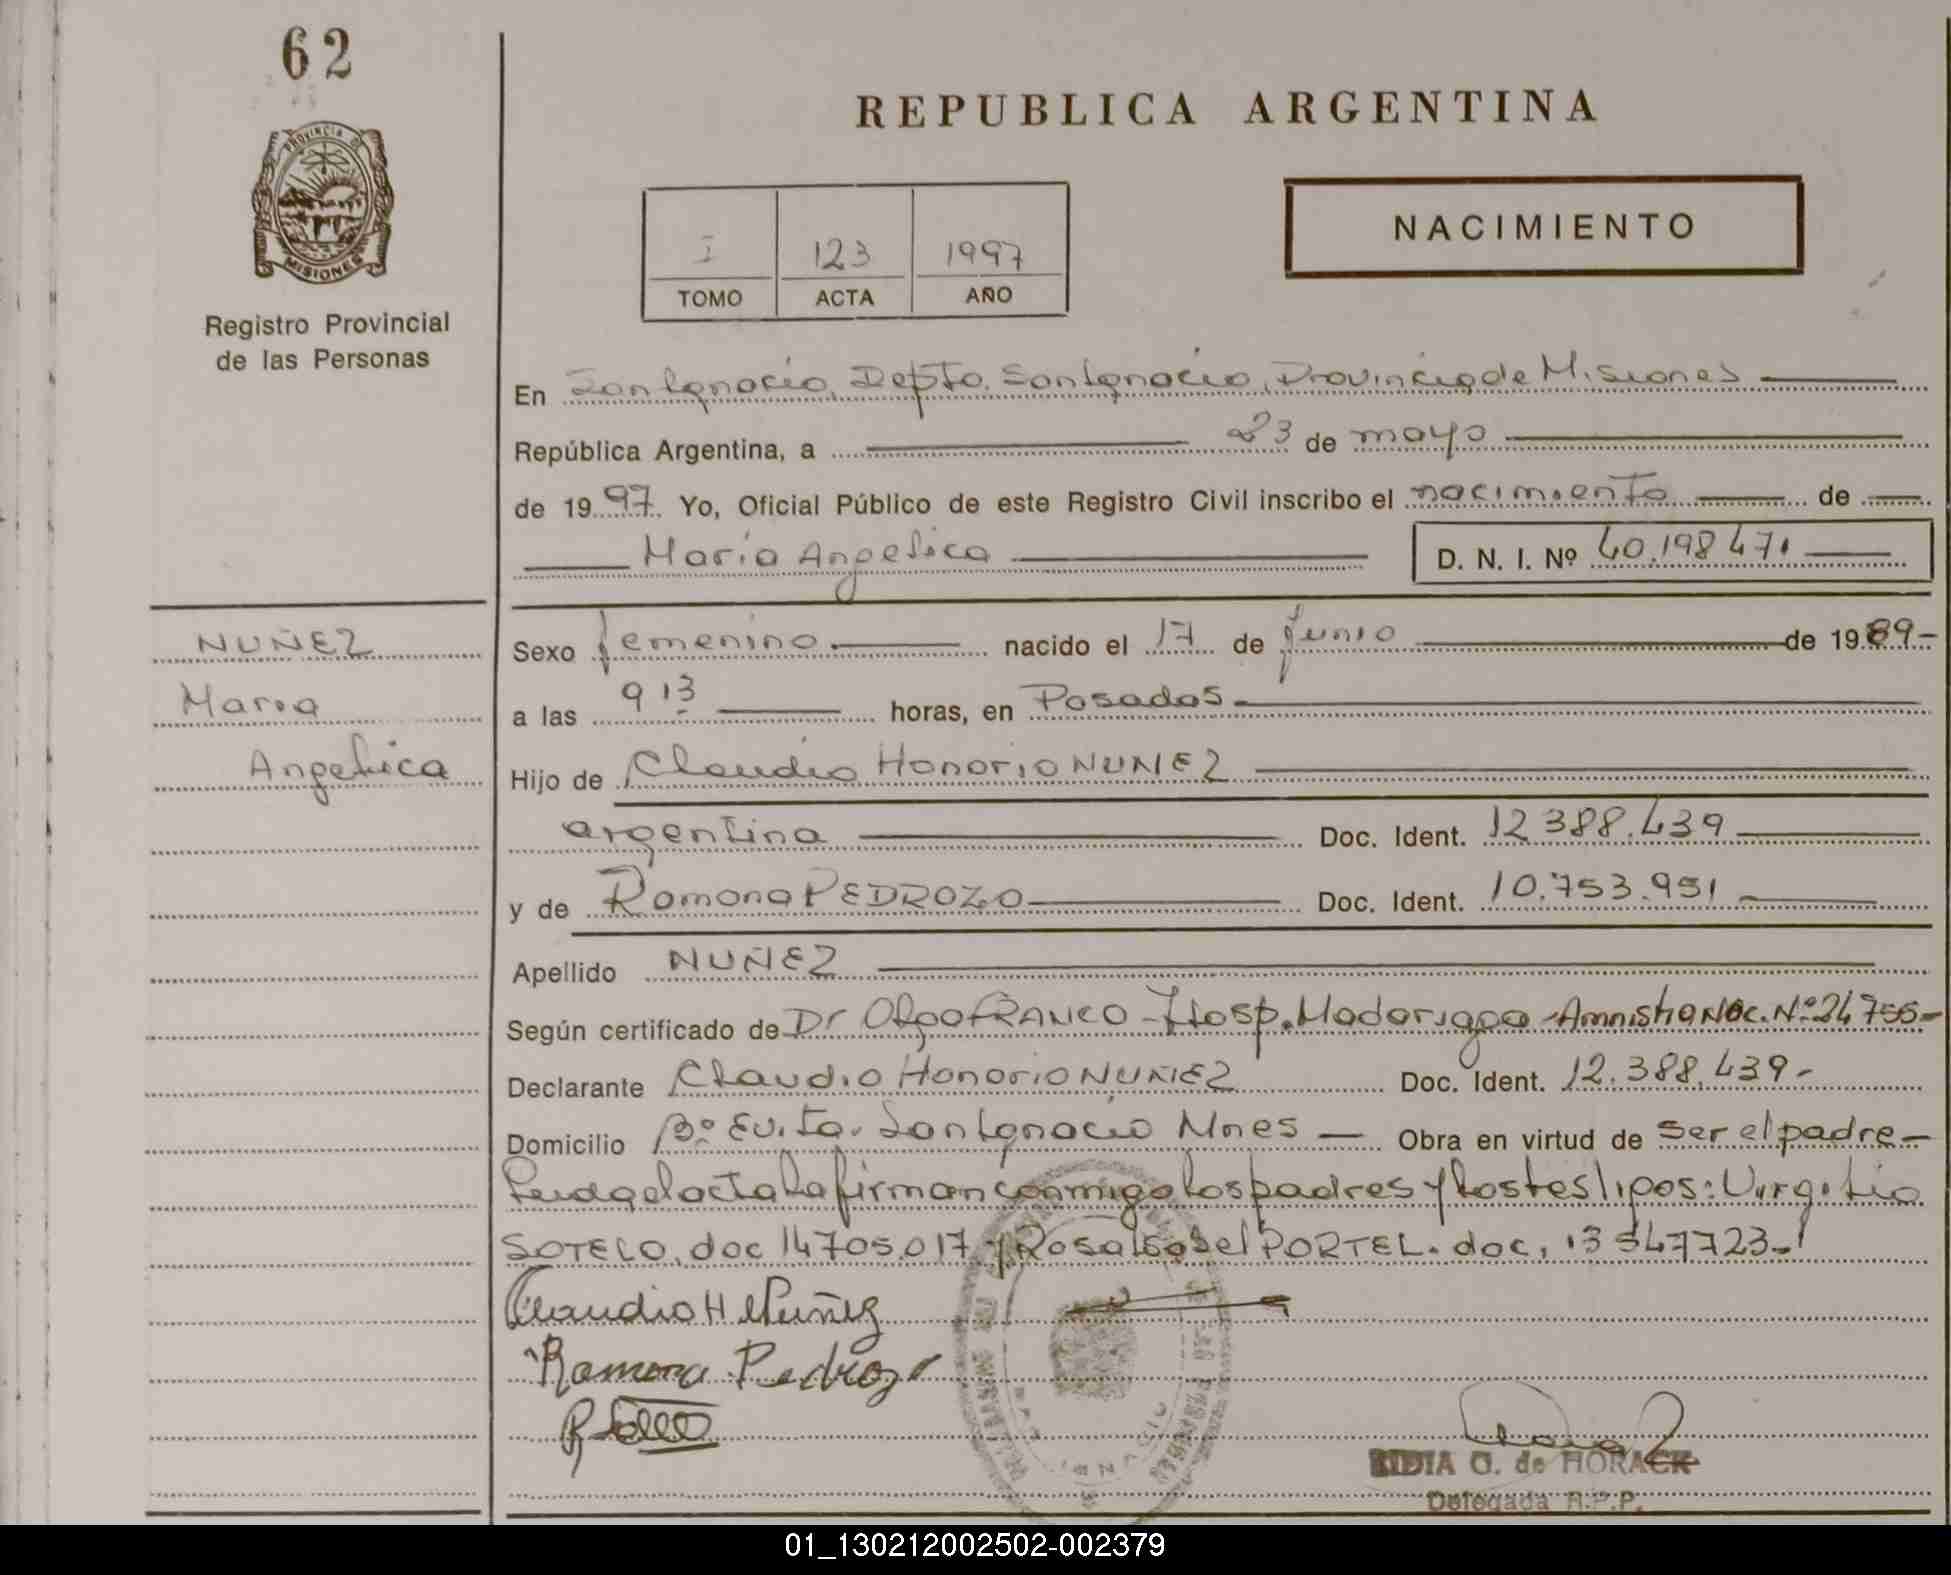 62
PROVINCIA DE
MISIONES
Registro Provincial
de las Personas
REPUBLICA ARGENTINA
I 123 1997
TOMO ACTA AÑO
NACIMIENTO
En San Ignacio, Depto. San Ignacio, Provincia de Misiones
República Argentina, a 23 de mayo
de 1997 Yo, Oficial Público de este Registro Civil inscribo el nacimiento de
Maria Angelica D. N. I. Nº 40.198 471
NUÑEZ
Maria
Angelica
Sexo femenino nacido el 17 de junio de 1989-
a las 9 13 horas, en Posadas
Hijo de Claudio Honorio NUÑEZ
argentina Doc. Ident. 12 388.439
y de Ramona PEDROZO Doc. Ident. 10.753.951
Apellido NUÑEZ
Según certificado de Dr Olga FRANCO - Hosp. Madariaga - Amnistia Nac. Nº 24 755-
Declarante Claudio Honorio NUÑEZ Doc. Ident. 12.388.439-
Domicilio Bº Evita. San Ignacio Mnes Obra en virtud de ser el padre-
Leida el acta la firman conmigo los padres y los testigos: Virgilio
SOTELO, doc 14705.017 y Rosa Isabel PORTEL. doc, 13 547723-
Claudio H Nuñez
Ramona Pedrozo
LIDIA O. de HORACK
Delegada R.P.P.
01_130212002502-002379